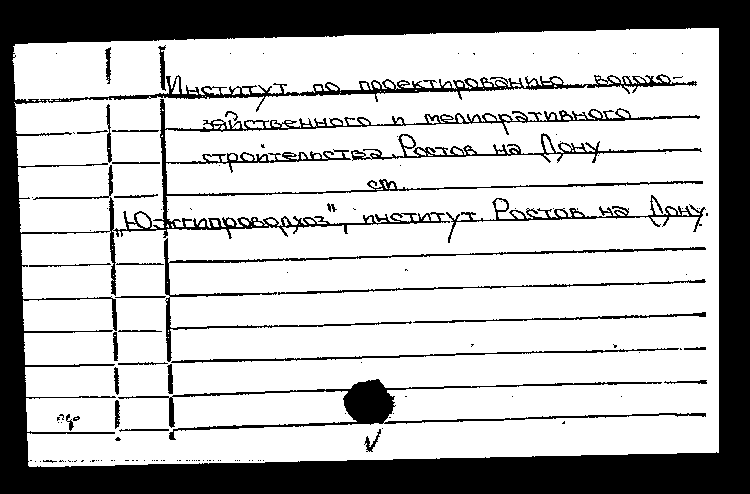 Институт по проектированию водохо-
зяйственного и мелиоративного
строительства. Ростов на Дону
см.
„Южгипроводхоз", институт. Ростов на Дону.